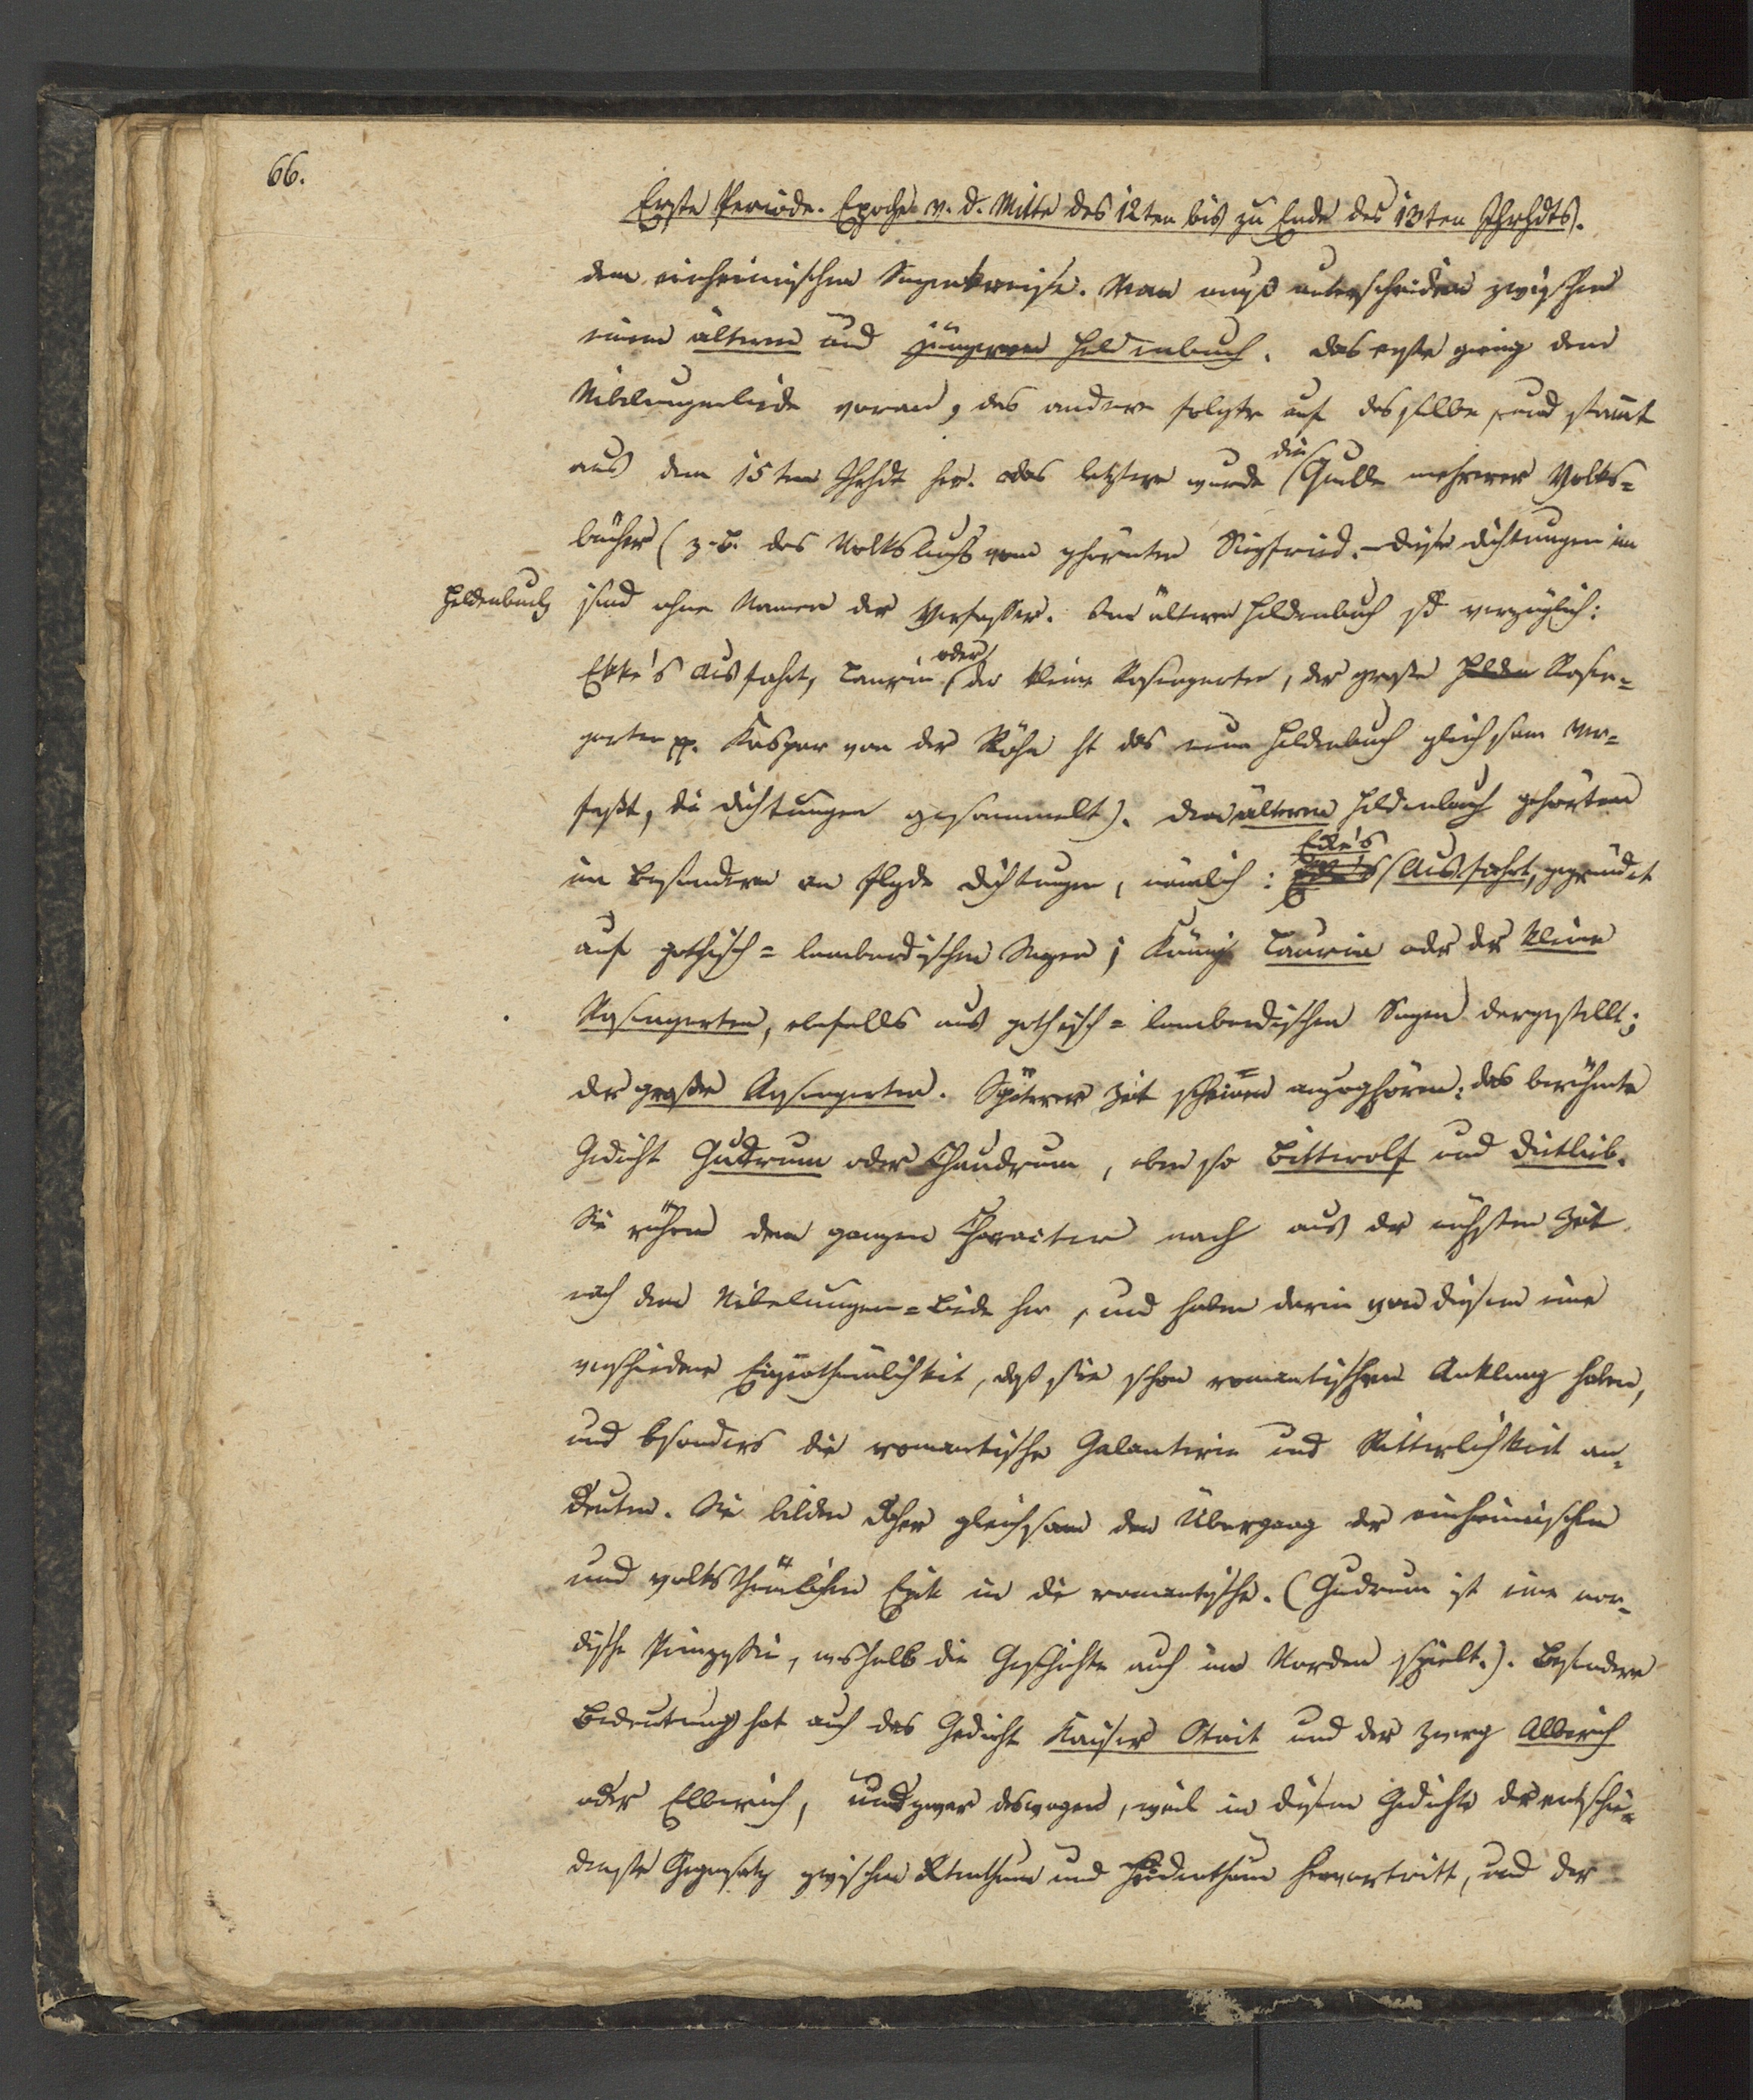 66.
Erste Periode. Epoche v. d. Mitte des 12ten bis zu Ende des 13ten Jhrhdts.
dem einheimischen Sagenkreise. Man muß unterscheiden zwischen
einem älteren und jüngeren Heldenbuch. Das erste ging dem
Nibelungenliede voran, das andere folgte auf dasselbe, und stammt
aus dem 15ten Jhrhdt her. Das letztere wurde die Quelle mehrerer Volks=
bücher (z. B. des Volksbuchs vom gehörnten Siegfried. – Diese Dichtungen im
Heldenbuch sind ohne Namen der Verfasser. Im älteren Heldenbuch ist vorzüglich:
Ekke's Ausfahrt, Laurin oder der kleine Rosengarten, der große Helden Rosen=
garten pp. Kaspar von der Röhn ht das neue Heldenbuch gleichsam ver=
faßt, die Dichtungen gesammelt). Dem älteren Heldenbuch gehörten
im Besondern an flgde Dichtungen, nämlich: Ecke's Ausfahrt, gegründet
auf gothisch=lombardischen Sagen; König Laurin oder der kleine
Rosengarten, ebenfalls aus gothisch=lombardischen Sagen dargestellt;
der große Rosengarten. Späterer Zeit scheinen anzugehören: das berühmte
Gedicht Gudrum oder Chaudrum, eben so Bitterolf und Dietleib.
Sie rühren dem ganzen Character nach aus der nächsten Zeit
nach dem Nibelungen=Liede her, und haben darin von diesem eine
verschiedene Eigenthümlichkeit, daß sie schon romantischen Anklang haben,
und besonders die romantische Galanterie und Ritterlichkeit an=
deuten. Sie bilden daher gleichsam den Übergang der einheimischen
und volksthümlichen Epik in die romantische. (Gudrum ist eine nor=
dische Prinzessin, weshalb die Geschichte auch im Norden spielt.). Besondere
Bedeutung hat auch das Gedicht Kaiser Otnit und der Zwerg Alberich
oder Elberich, und zwar deswegen, weil in diesem Gedichte der entschie=
denste Gegensatz zwischen Xtenthum und Heidenthum hervortritt, und der